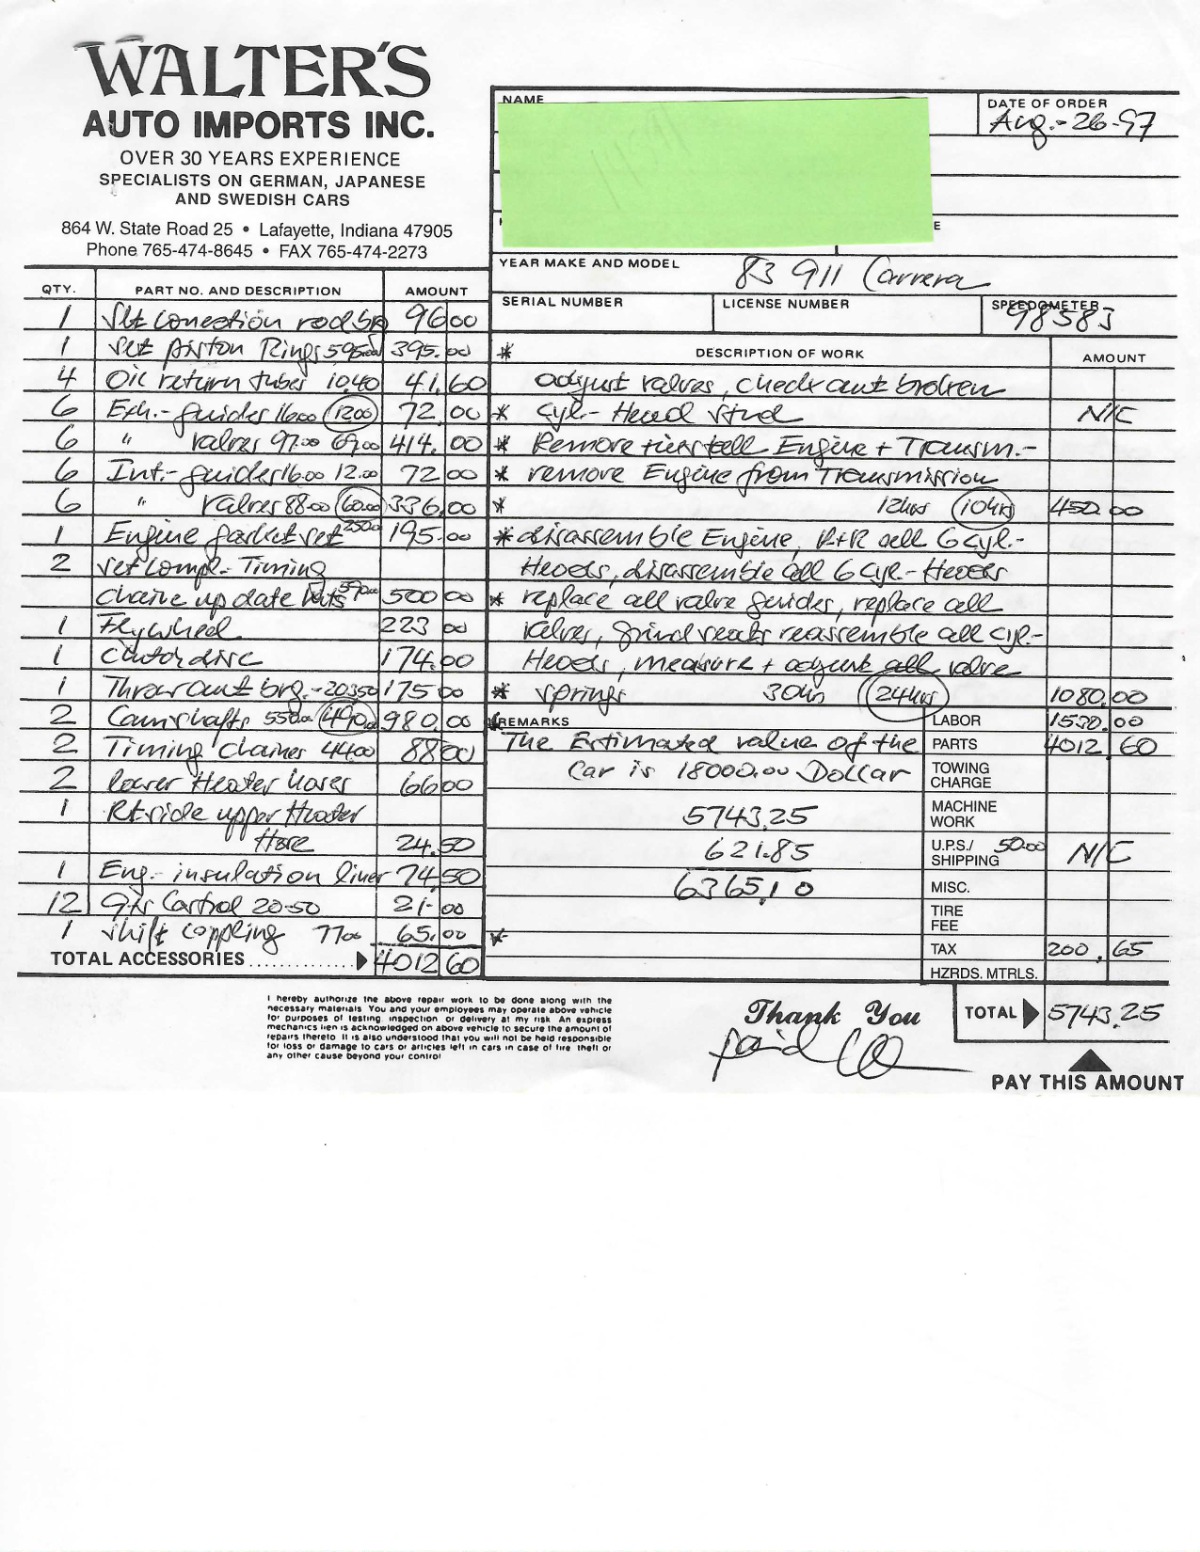 WALTER'S
AUTO IMPORTS INC.
OVER 30 YEARS EXPERIENCE
SPECIALISTS ON GERMAN, JAPANESE
AND SWEDISH CARS
864 W. State Road 25 • Lafayette, Indiana 47905
Phone 765-474-8645 • FAX 765-474-2273
NAME
DATE OF ORDER
Aug.-26-97
E
YEAR MAKE AND MODEL 83 911 Carrera
SERIAL NUMBER LICENSE NUMBER SPEEDOMETER
98583
QTY. PART NO. AND DESCRIPTION AMOUNT
1 Set conection rod 96 00
1 Set Piston Rings 395.00
4 Oil return tubes 10.40 41.60
6 Exh.- guides 16.00 12.00 72.00
6 " valves 97.00 69.00 414.00
6 Int.- guides 16.00 12.00 72 00
6 " valves 88.00 60.00 336.00
1 Engine gasket set 250.00 195.00
2 set compl.- Timing
chaine update kits 500 00
1 Flywheel 223 00
1 Clutch disc 174.00
1 Throw out brg.- 203.50 175 00
2 Camshafts 550.00 490.00 980.00
2 Timing chaines 44.00 88 00
2 lower Heater hoses 66 00
1 Rt. side upper Heater
Hose 24.50
1 Eng.- insulation liner 74 50
12 Qts Castrol 20-50 21.00
1 shift coppling 77.00 65.00
TOTAL ACCESSORIES 4012 60
* DESCRIPTION OF WORK AMOUNT
adjust valves, check out broken
* Cyl.- Head stud N/C
* Remove + install Engine + Transm.-
* remove Engine from Transmission
* 12hrs 10hrs 450.00
* disassemble Engine, R+R all 6 Cyl.-
Heads, disassemble all 6 Cyl.- Heads
* replace all valve guides, replace all
valves, grind seats reassemble all cyl.-
Heads, measure + adjust all valve
* springs 30hrs 24hrs 1080.00
REMARKS
The Estimated value of the
Car is 18000.00 Dollar
5743.25
621.85
6365.10
LABOR 1530.00
PARTS 4012 60
TOWING
CHARGE
MACHINE
WORK
U.P.S./
SHIPPING 50.00 N/C
MISC.
TIRE
FEE
TAX 200.65
HZRDS. MTRLS.
I hereby authorize the above repair work to be done along with the
necessary materials. You and your employees may operate above vehicle
for purposes of testing, inspection or delivery at my risk. An express
mechanics lien is acknowledged on above vehicle to secure the amount of
repairs thereto. It is also understood that you will not be held responsible
for loss or damage to cars or articles left in cars in case of fire, theft or
any other cause beyond your control.
Thank You
paid
TOTAL 5743.25
PAY THIS AMOUNT